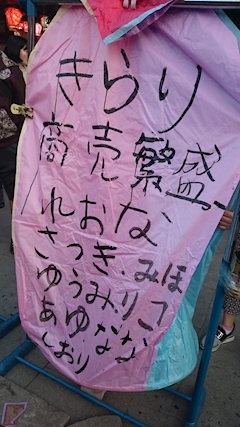 きらり
商売繁盛
れおな
さつき.みほ
ゆうみ.りこ
あゆな
しおり